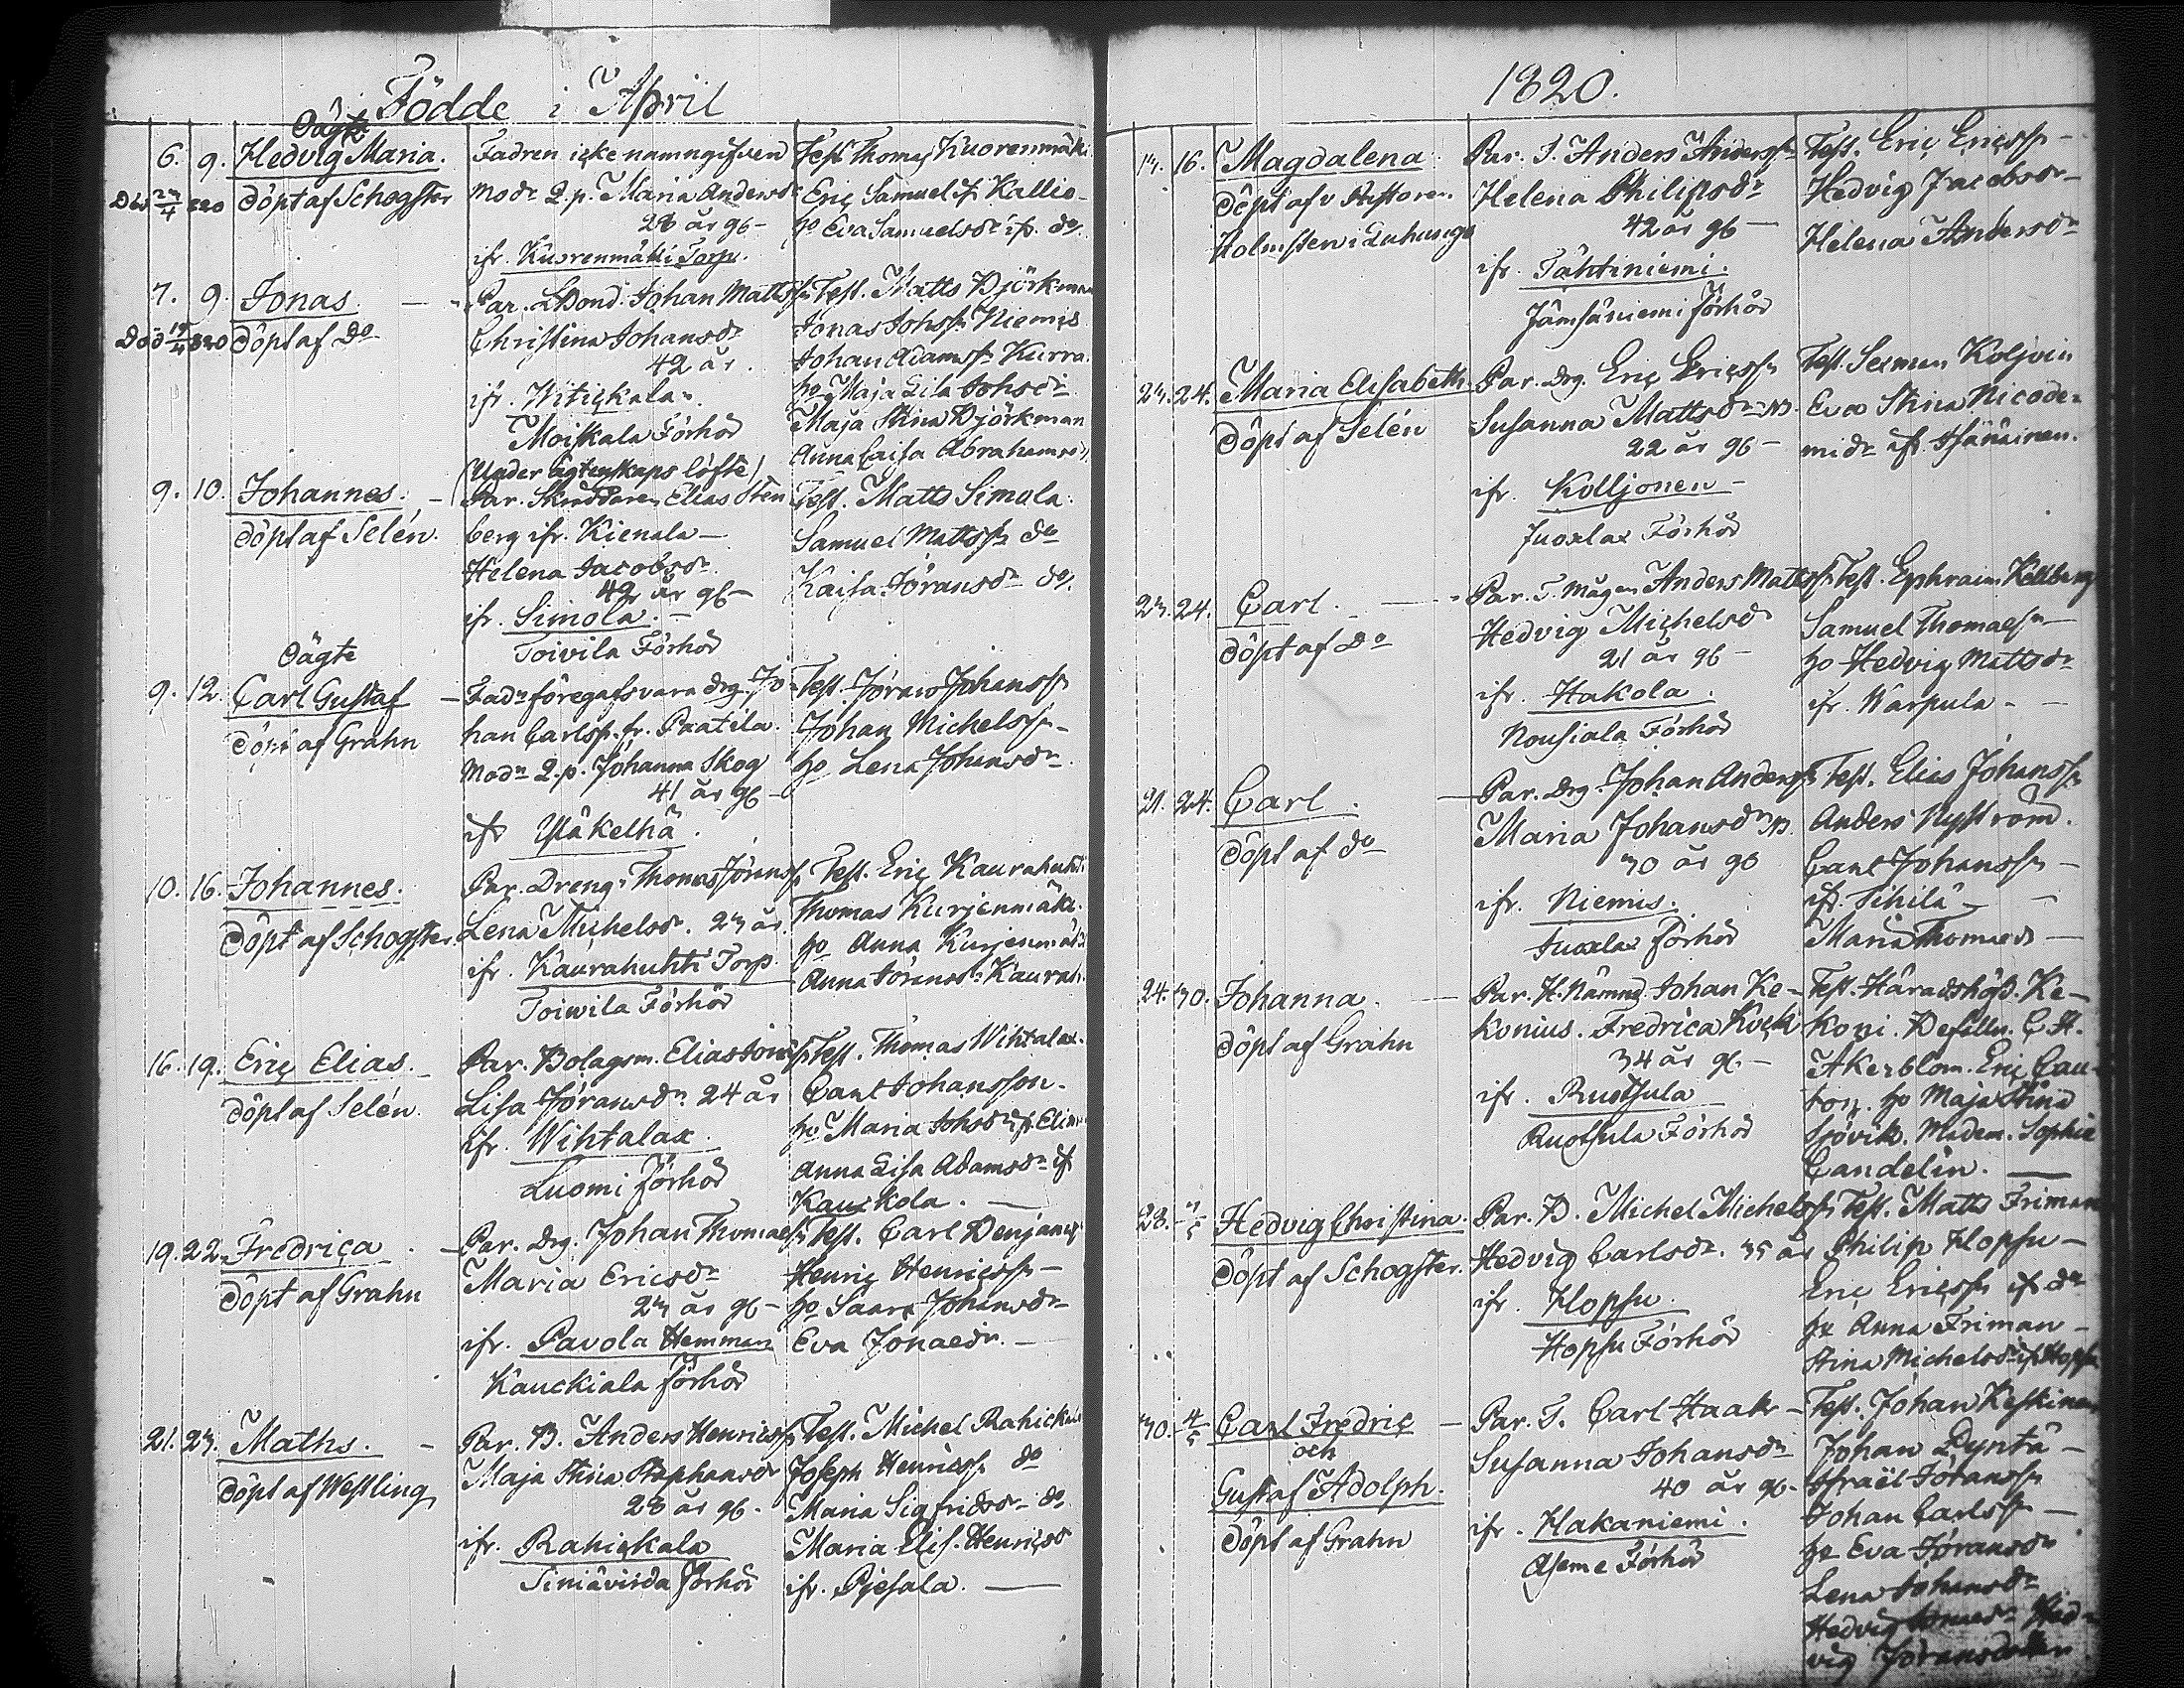 Födde i April
Oägte
6. 9. Hedvig Maria.
Död 23/4 820 döpt af Schogster
Fadren icke namngifven
Modr Q.p. Maria Andersdr
28 år gb -
ifr. Kuorenmäki Torp.
Test Thomas Kuorenmäki
Eric Samuel ifr Kallio -
ho Eva Samuelsdr ifr. do
7. 9. Jonas.
Död 820 döpt af do
Par. LBond. Johan Mattss
Christina Johansdr
42 år.
ifr. Witickala.
Moiskala Förhör
Test. Matts Björkman
Jonas Johss Niemis
Johan Adamss Kurra.
ho Maja Lisa Johsdr
Maja Stina Björkman
Anna Caisa Abrahamsd
9. 10. Johannes.
döpt af Selén.
(Under ägtenskaps löfte)
Par. Skräddaren Elias Sten
berg ifr. Kienala -
Helena Jacobsdr
42 år gb -
ifr. Simola. -
Toivila Förhör
Test. Matts Simola.
Samuel Mattss do
Kaisa Göransdr do
Oägte
9. 12. Carl Gustaf
döpt af Grahn
Fadn föregafs vara drg. Jo-
han Carlss. fr. Paatila.
Modn Q.p. Johanna Skog
41 år gb -
ifr Yläkelhä.
Test. Jöran Johanss
Johan Michelss -
ho Lena Johansdr
10. 16. Johannes.
döpt af Schogster
Par. Dreng. Thomas Jöranss
Lena Michelsdr. 23 år.
ifr. Kaurahuhti Torp.
Toiwila Förhör
Test. Eric Kaurahuhti
Thomas Kurjenmäki.
ho Anna Kurjenmäki
Anna Göransdr Kaurah.
16. 19. Eric Elias.
döpt af Selén.
Par. Bolagsm. Elias
Lisa Jöransdr. 24 år
ifr. Wihtalax.
Luomi förhör
Test. Thomas Wihtalax.
Carl Johansson.
ho Maria Johsdr ifr
Anna Lisa Adamsdr ifr
Kauckola. -
19. 22. Fredrica.
döpt af Grahn
Par. drg. Johan Thomaess
Maria Ericsdr
23 år gb -
ifr. Pavola Hemman
Kauckiala förhör
Test. Carl Benjamss
Henric Henricss -
ho Saara Johansdr
Eva Jonaedr. -
21. 23. Maths. -
döpt af Westling
Par. B. Anders Henricss
Maja Stina Stephansdr
28 år gb.
ifr. Rahickala
förhör
Test. Michel Rahickala
Joseph Henricss do
Maria Sigfridsdr do
Maria Elis. Henricsd
ifr. Pjesala. -
1820.
13. 16. Magdalena
döpt af v Pastoren
Holmsten i Luhanga
Par. T. Anders Anderss
Helena Philipsdr
42 år gb -
ifr. Tähtiniemi.
Jämsäniemi förhör
Test. Eric Ericss -
Hedvig Jacobsdr -
Helena Andersdr
23. 24. Maria Elisabeth
döpt af Selén
Par. drg. Eric Ericss
Susanna Mattsdr
22 år gb -
ifr. Kolljonen -
Juoxlax Förhör
Test. Sexman Koljoin
Eva Stina Nicode-
midr ifr
23. 24. Carl. -
döpt af do
Par. T. mågen Anders Mattss
Hedvig Michelsdr
21 år gb -
ifr. Hakola.
Nousiala Förhör
Test. Ephraim Kellberg
Samuel Thomaess -
ho Hedvig Mattsdr
ifr. Warpula - -
21. 24. Carl.
döpt af do
Par. Drg. Johan Anderss
Maria Johansdr
30 år gb
ifr. Niemis.
Juoxlax förhör
Test. Elias Johanss
Anders Nyström.
Carl Johanss -
ifr. Sihilä -
Maria Thomaedr -
24. 30. Johanna. -
döpt af Grahn
Par. H. Nämnd. Johan Ke-
konius. Fredrica Kock
34 år gb. -
ifr. Ruotsula
Ruotsula Förhör
Test. Häradshöfd. Ke-
koni. Befalln. C. H.
Åkerblom. Eric Cau-
ton. ho Maja Stina
Sjövik. Madem. Sophie
Candelin. -
28. 3/5 Hedvig Christina.
döpt af Schogster.
Par. B. Michel Michelss
Hedvig Carlsdr. 35 år
ifr. Hopsu.
Hopsu Förhör
Test. Matts Friman
Philip Hopsu -
Eric Ericss ifr do
ho Anna Friman -
Stina Michelsdr ifr Hopsu
30. 4/5 Carl Fredric
och
Gustaf Adolph.
döpt af Grahn
Par. T. Carl Haak -
Susanna Johansdr
40 år gb.
ifr. Hakaniemi.
Aseme Förhör
Test. Johan Keskinen
Johan Lyntä -
Israël Göranss
Johan Carlss -
ho Eva Göransdr
Lena Johansdr
Hedvig Hed-
vig Jöransdotter